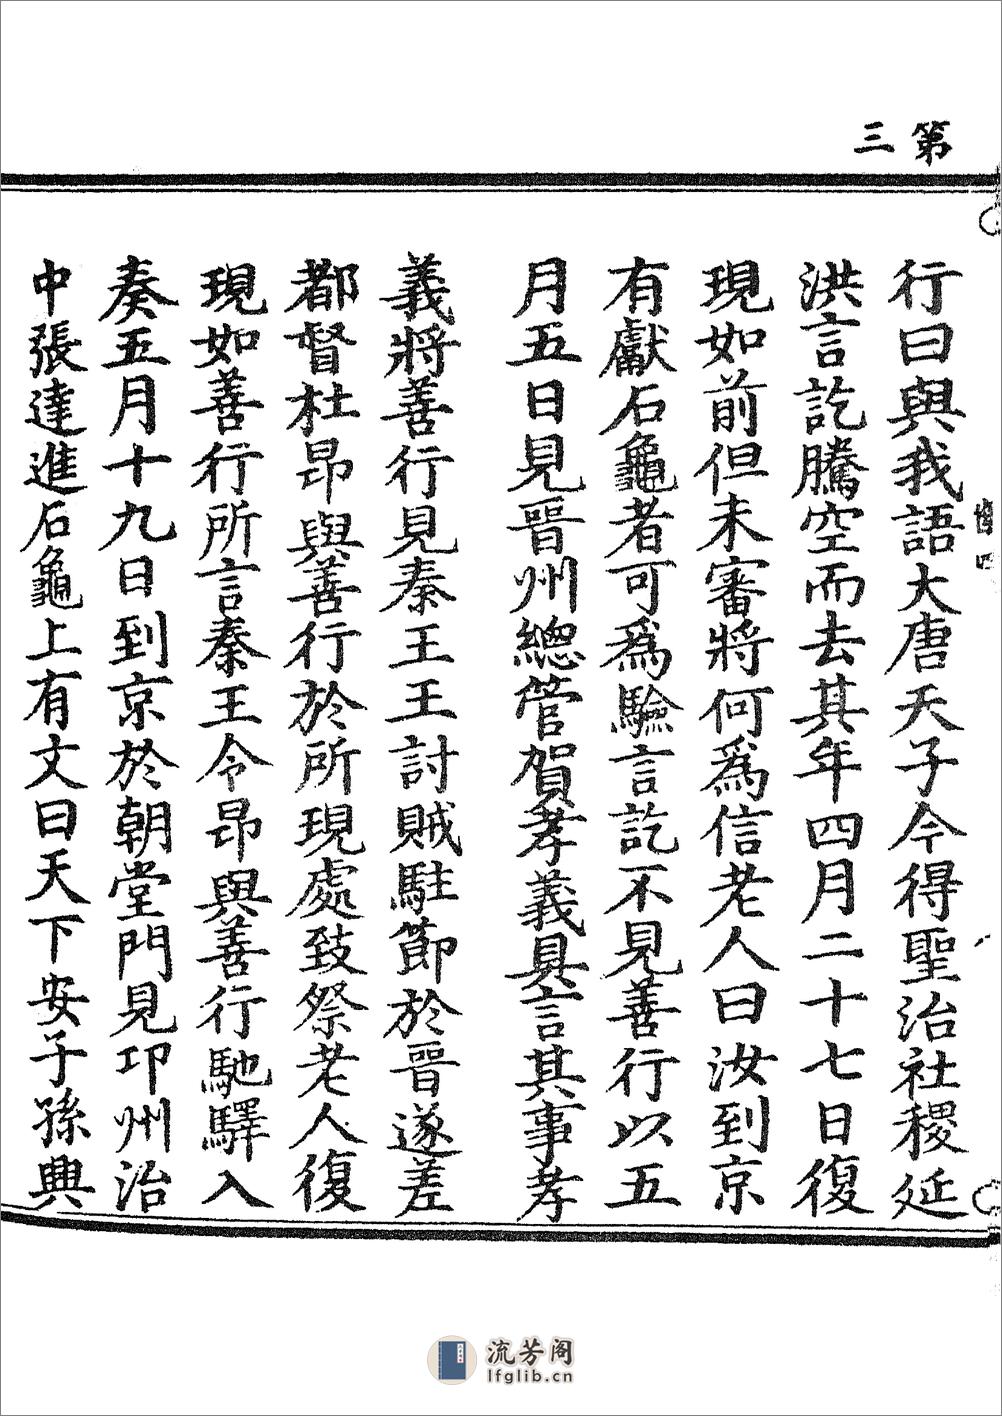 第三
行曰與我語大唐天子今得聖治社稷延
洪言訖騰空而去其年四月二十七日復
現如前但未審將何爲信老人曰汝到京
有獻石龜者可爲驗言訖不見善行以五
月五日見晉州總管賀孝義具言其事孝
義將善行見秦王王討賊駐節於晉遂差
都督杜昂與善行於所現處致祭老人復
現如善行所言秦王令昂與善行馳驛入
奏五月十九日到京於朝堂門見邛州治
中張達進石龜上有文曰天下安子孫興
流芳阁
lfglib.cn